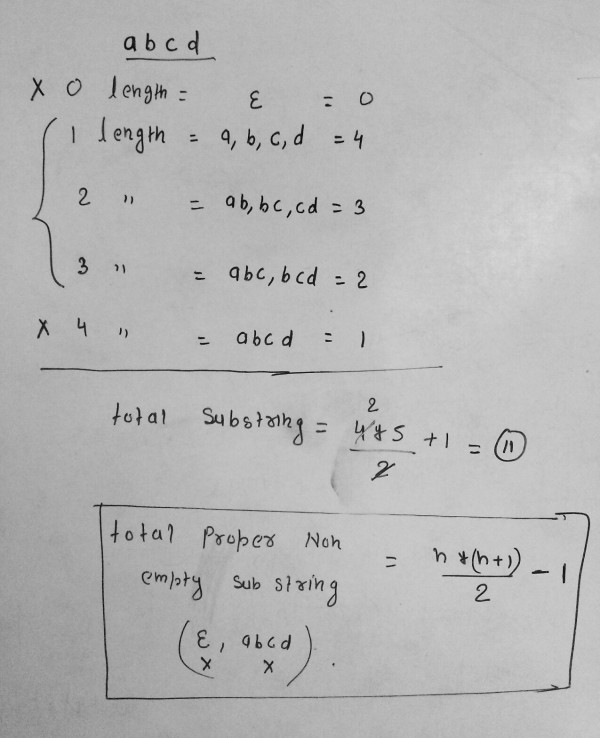 abcd
X 0 length = ε = 0
1 length = a, b, c, d = 4
2 " = ab, bc, cd = 3
3 " = abc, bcd = 2
X 4 " = abcd = 1
total Substring = 4*5/2 + 1 = 11
2
total Proper Non empty Sub string = n*(n+1)/2 - 1
(ε, abcd).
x x